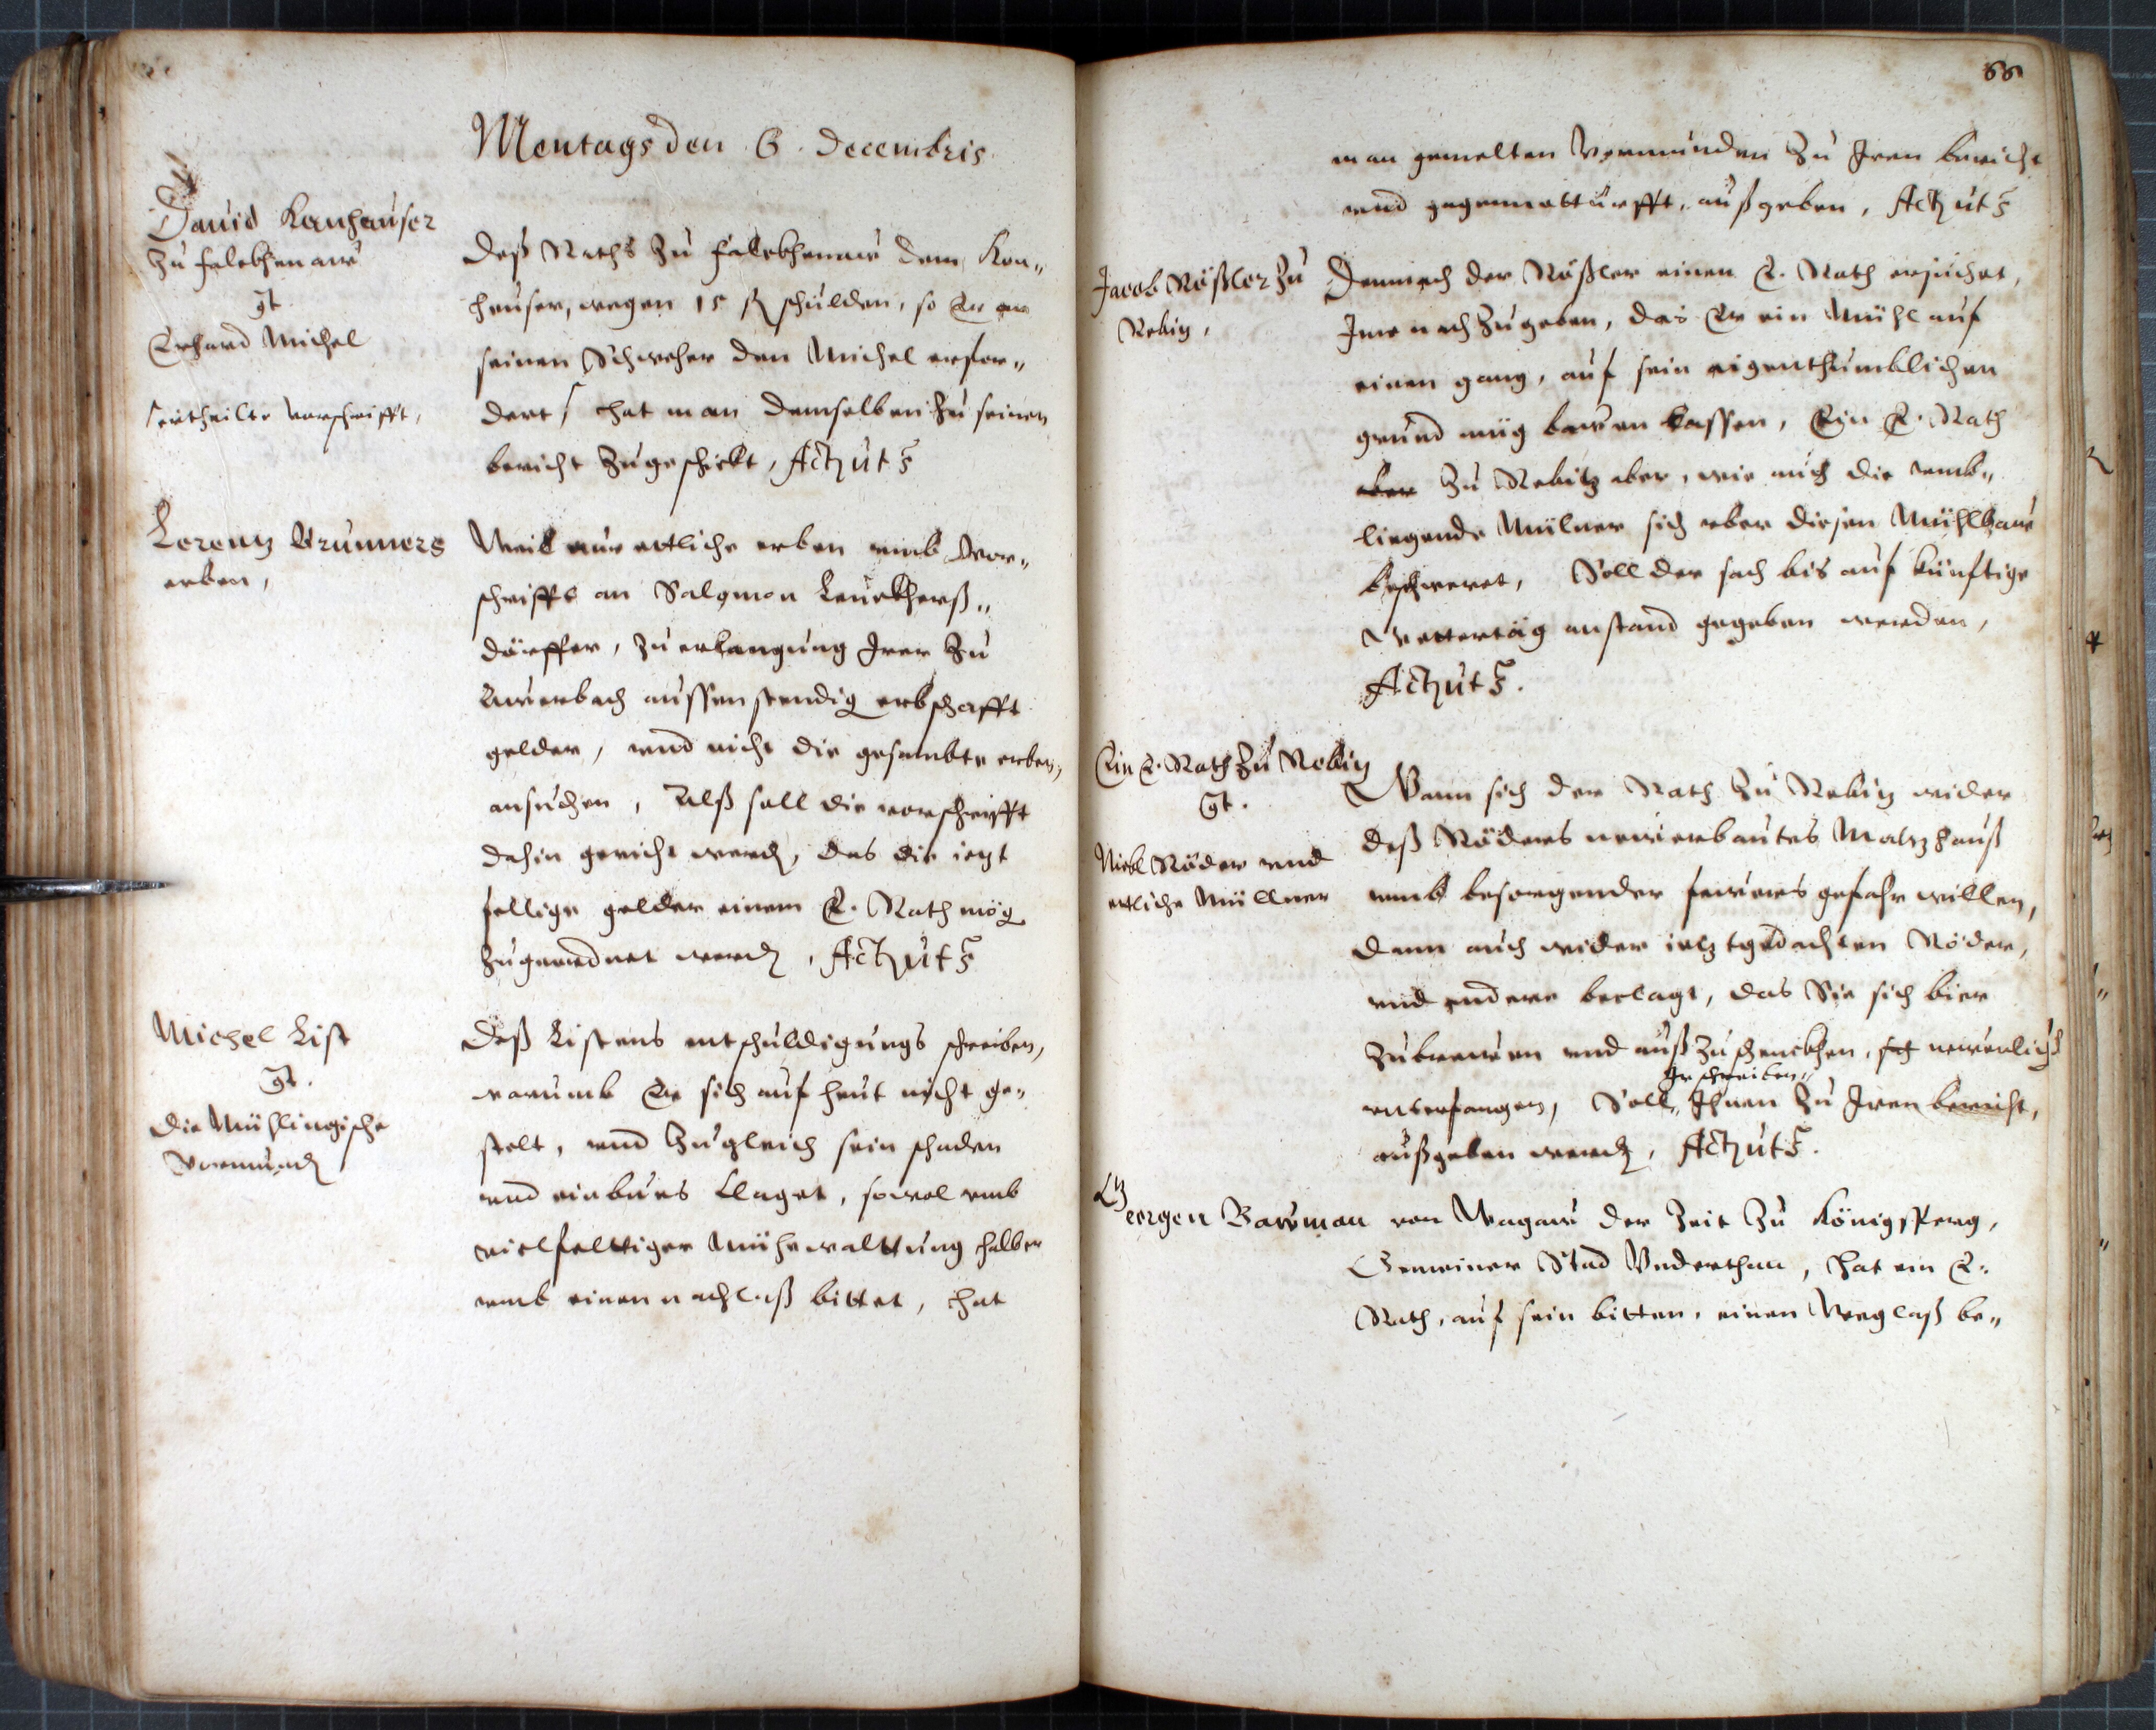 Montags den 6. Decembris.
Dauid Konheuser
zu falckhenaw
gt.
Erhard Michel
ertheilte vorschrifft,
Deß Raths zu falckhenaw dem Kon„
heuser, wegen 15 ß schulden, so Er an
seinen Schweher den Michel erfor„
dert hat man demselben zu seinen
bericht zugeschickt, Act. ut s
Lorentz Brunners
erben,
Weil nur etliche erben umb vor„
schrifft an Salomon
dörffer, zu erlangung Irer zu
Awerbach aussenstendig erbschafft
gelder, und nicht die gesambte erben,
ansuchen, Alß soll die vorschrifft
dahin gericht werd, das die ietzt
fellige gelder einem E. Rath mög
zugeordnet werd, Act. ut s
Michel List
gt.
Die Mühlingische
Vormund
Deß Listens entschuldigungs schreiben,
warumb Er sich auf heut nicht ge„
stelt, und zugleich sein schaden
und einbus klaget, sowol umb
vielfelttiger mühewalttung halber
umb einen nachlaß bittet, hat
66
man gemelten Vormunden zu Iren bericht
und gegennotturfft, außgeben, Act. ut s
Jacob Rößler zu
Rebitz,
Demnach der Rößler einen E. Rath ersuchet,
Ime nachzugeben, das Er ein Mühl auf
einen gang, auf sein eigenthumblichen
grund müg bawen lassen, Ein E. Rath
aber zu Rebitz aber, wie auch die umb„
liegende Mülner sich ober diesen Mühlbaw
beschweret, Soll der sach bis auf künftige
Wettertäg anstand gegeben werden,
Act. ut s.
Ein E. Rath zu Rebitz
gt.
Nickl Röder und
etliche Müllner
Wann sich der Rath zu Rebitz wider
deß Röders newerbautes Maltzhauß
umb besorgender fewers gefahr willen,
dann auch wider ietztgedachten Röder,
und andere beclagt, das Sie sich bier
zubrewen und außzuschenckhen, sich newerlich
unterfangen, Soll Ihr schreiben„ Ihnen zu Iren bericht,
außgeben werd, Act. ut s.
Georgen Bawman von Wagaw der Zeit zu Königsperg,
Gemeiner Stad Underthan, hat ein E.
Rath, auf sein bitten, einen Weglaß be„